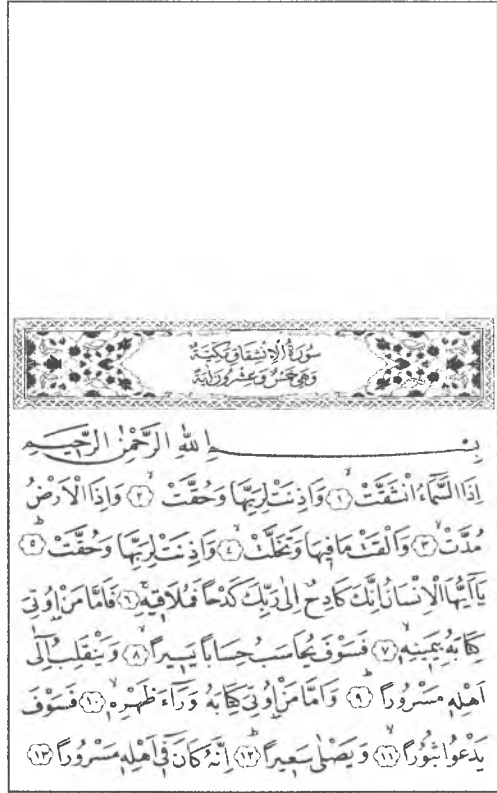 سُورَةُ الْاِنْشِقَاقِ مَكِّيَّةٌ
وَهِيَ خَمْسٌ وَعِشْرُونَ اٰيَةً
بِسْــــــمِ اللّٰهِ الرَّحْمٰنِ الرَّحٖيمِ
اِذَا السَّمَٓاءُ انْشَقَّتْۙ ﴿١﴾ وَاَذِنَتْ لِرَبِّهَا وَحُقَّتْۙ ﴿٢﴾ وَاِذَا الْاَرْضُ
مُدَّتْۙ ﴿٣﴾ وَاَلْقَتْ مَا فٖيهَا وَتَخَلَّتْۙ ﴿٤﴾ وَاَذِنَتْ لِرَبِّهَا وَحُقَّتْۜ ﴿٥﴾
يَٓا اَيُّهَا الْاِنْسَانُ اِنَّكَ كَادِحٌ اِلٰى رَبِّكَ كَدْحاً فَمُلَاقٖيهِۚ ﴿٦﴾ فَاَمَّا مَنْ اُو۫تِيَ
كِتَابَهُ بِيَمٖينِهٖۙ ﴿٧﴾ فَسَوْفَ يُحَاسَبُ حِسَاباً يَسٖيراًۙ ﴿٨﴾ وَيَنْقَلِبُ اِلٰٓى
اَهْلِهٖ مَسْرُوراًۜ ﴿٩﴾ وَاَمَّا مَنْ اُو۫تِيَ كِتَابَهُ وَرَٓاءَ ظَهْرِهٖۙ ﴿١٠﴾ فَسَوْفَ
يَدْعُوا ثُبُوراًۙ ﴿١١﴾ وَيَصْلٰى سَعٖيراًۜ ﴿١٢﴾ اِنَّهُ كَانَ فٖٓي اَهْلِهٖ مَسْرُوراًۜ ﴿١٣﴾